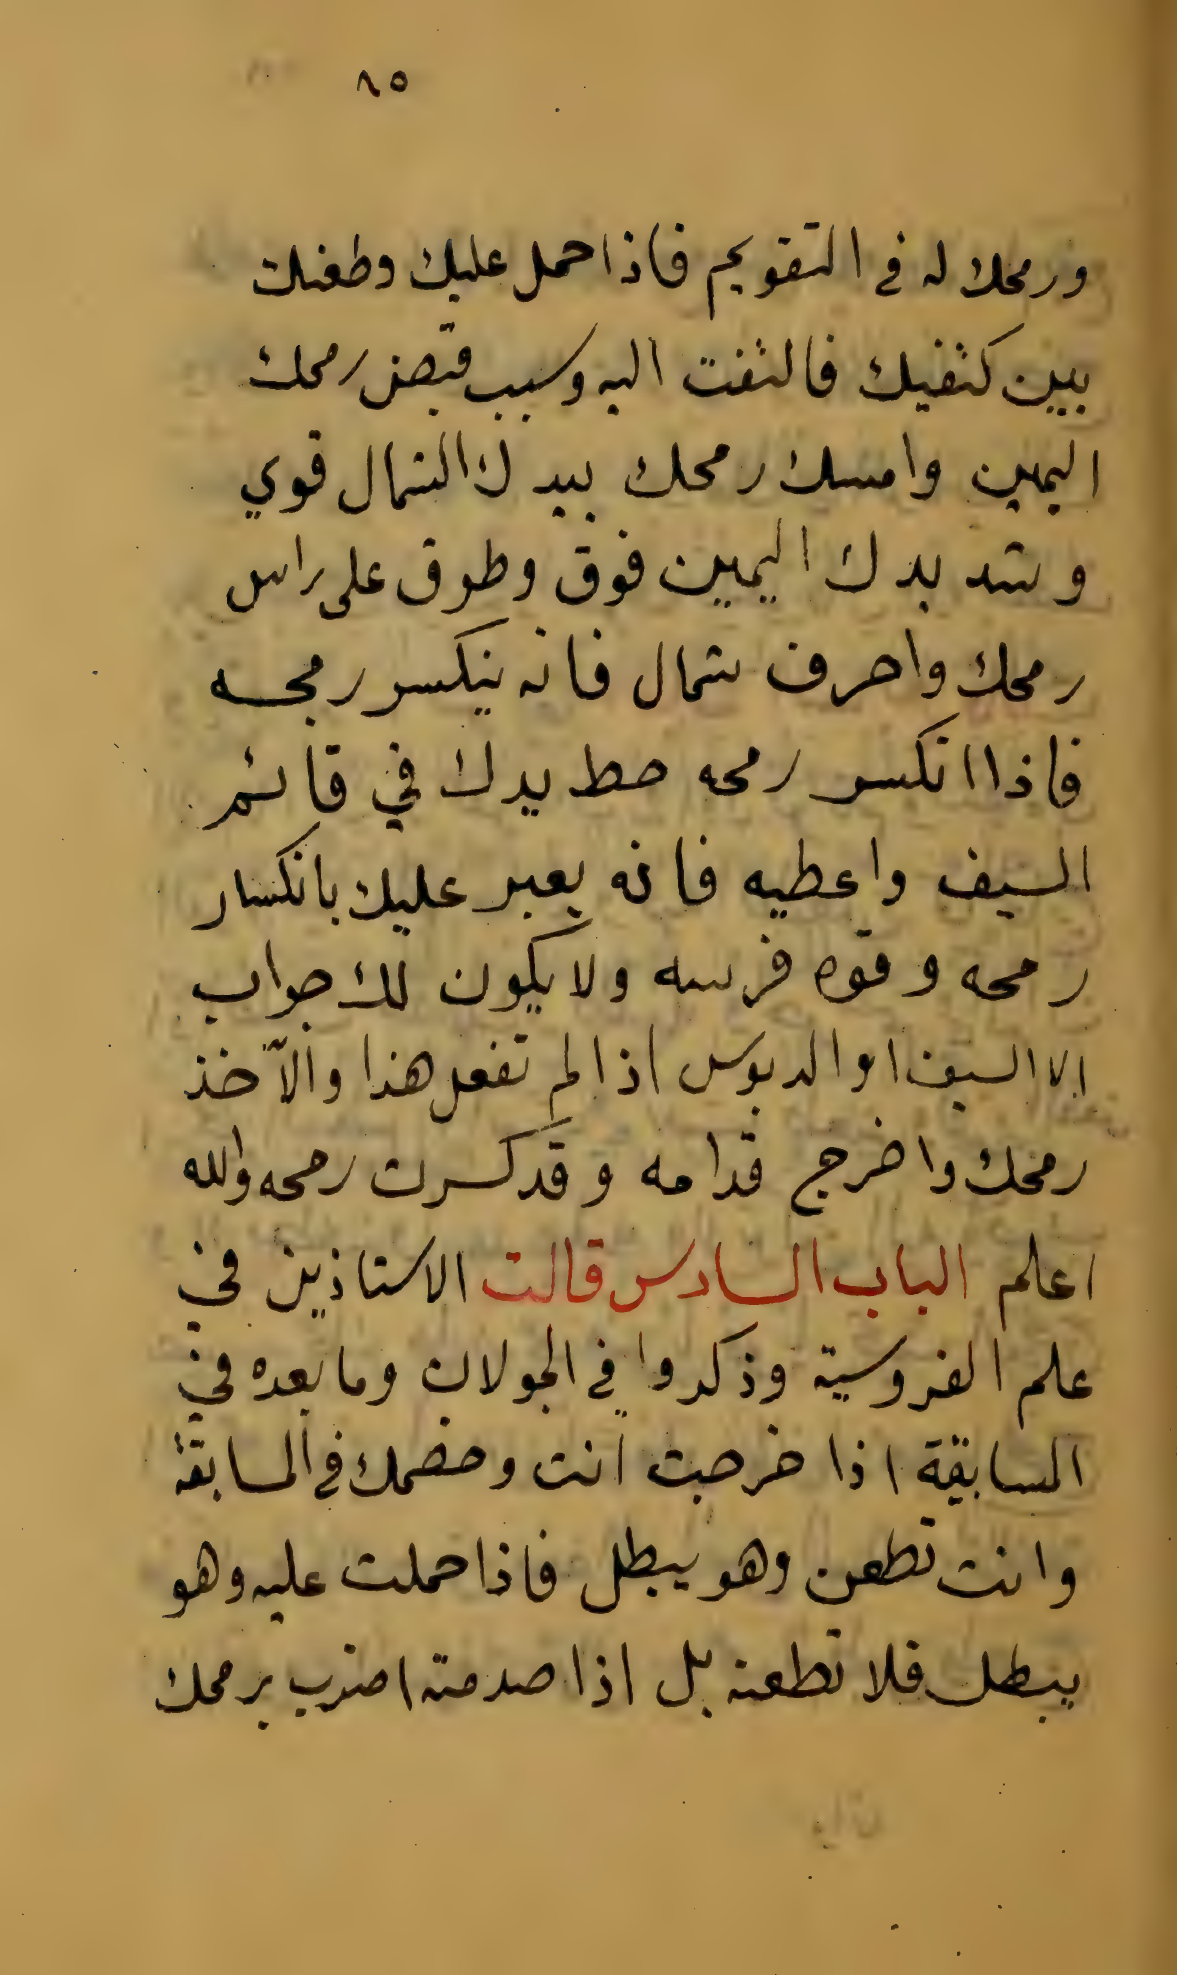 ٨٥
ورمحك له في التقويم فاذا حمل عليك وطعنك
بين كتفيك فالتفت اليه وسيب قبض رمحك
اليمين وامسك رمحك بيدك الشمال قوي
وشد يدك اليمين فوق وطوق على راس
رمحك واحرف شمال فانه ينكسر رمحه
فاذا انكسر رمحه حط يدك في قائم
السيف واعطيه فانه يعبر عليك بانكسار
رمحه وقوه فرسه ولا يكون لك جواب
الا السيف او الدبوس اذا لم تفعل هذا والا خذ
رمحك واخرج قدامه وقد كسرت رمحه والله
اعلم الباب السادس قالت الاستاذين في
علم الفروسية وذكروا في الجولان وما بعده في
السابقة اذا خرجت انت وخصمك في السابقة
وانت تطعن وهو يبطل فاذا حملت عليه وهو
يبطل فلا تطعنه بل اذا صدمته اضرب برمحك